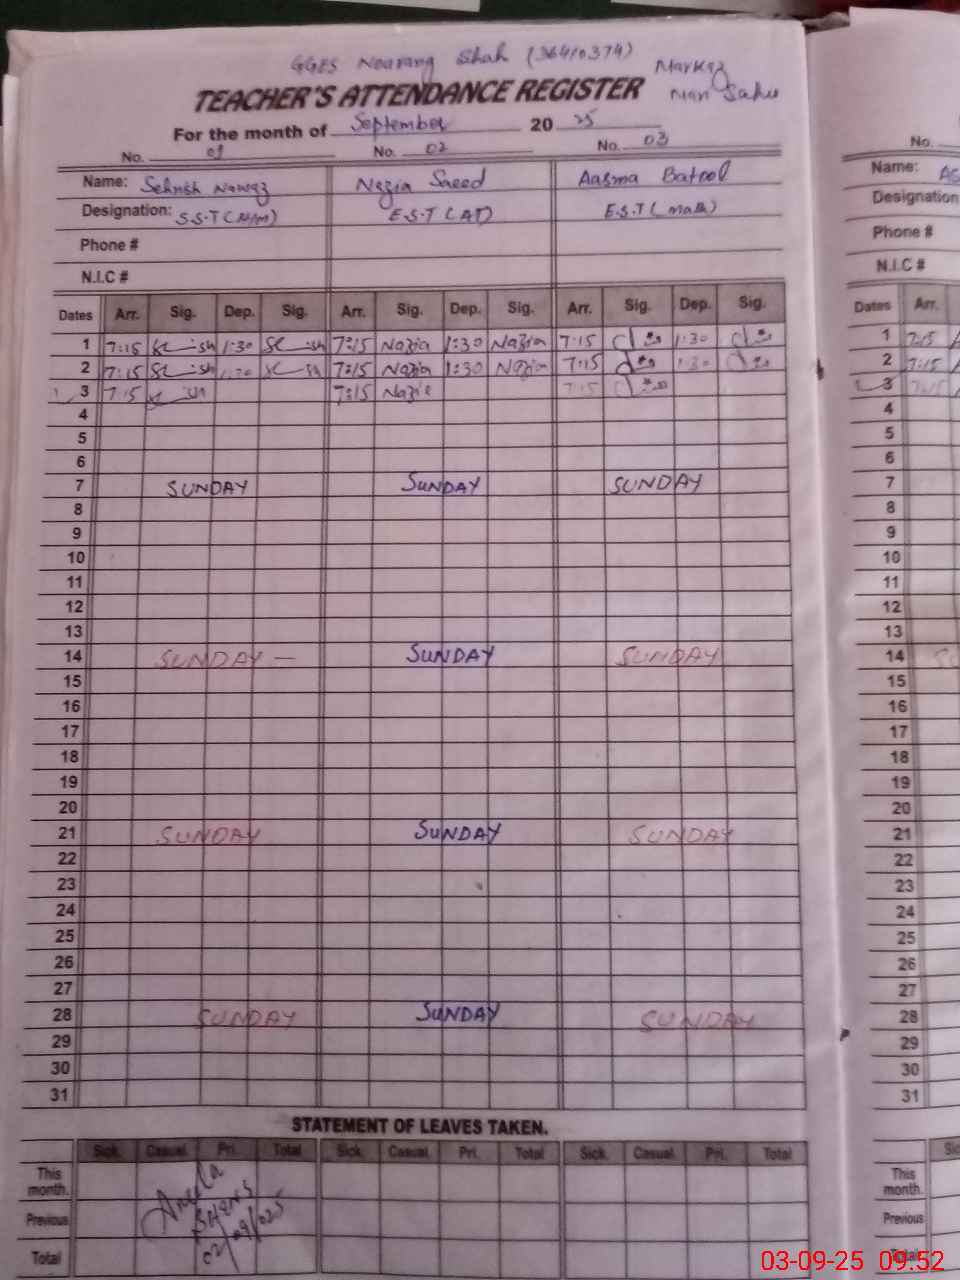 GGES Noorang Shah (36410374)
Markaz
TEACHER'S ATTENDANCE REGISTER
For the month of September 20 25
No. 01 No. 02 No. 03 No.
Name: Sehrish Nawaz Nazia Saeed Aasma Batool Name:
Designation: S.S.T E.S.T (AT) E.S.T (Math) Designation
Phone # Phone #
N.I.C # N.I.C #
Dates Arr. Sig. Dep. Sig. Arr. Sig. Dep. Sig. Arr. Sig. Dep. Sig. Dates Arr.
1 7:15 1:30 7:15 Nazia 1:30 Nazia 7:15 1:30 1 7:15
2 7:15 1:30 7:15 Nazia 1:30 Nazia 7:15 1:30 2 7:15
3 7:15 7:15 Nazia 7:15 3 7:15
4 4
5 5
6 6
7 SUNDAY SUNDAY SUNDAY 7
8 8
9 9
10 10
11 11
12 12
13 13
14 SUNDAY — SUNDAY SUNDAY 14
15 15
16 16
17 17
18 18
19 19
20 20
21 SUNDAY SUNDAY SUNDAY 21
22 22
23 23
24 24
25 25
26 26
27 27
28 SUNDAY SUNDAY SUNDAY 28
29 29
30 30
31 31
STATEMENT OF LEAVES TAKEN.
Sick. Casual Pri. Total Sick. Casual. Pri. Total Sick. Casual. Pri. Total
This month. This month.
Previous Previous
Total Total
02/09/025
03-09-25 09:52